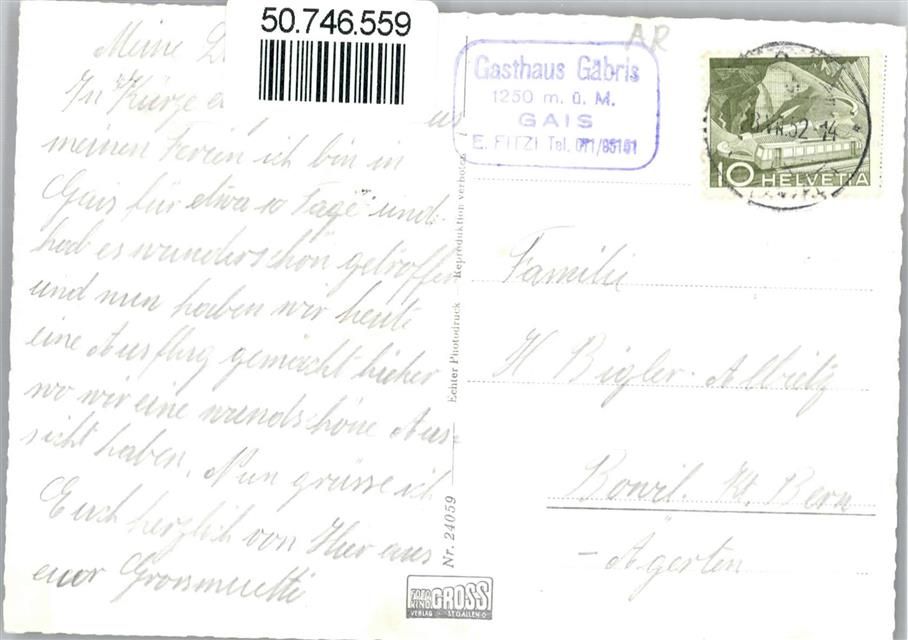 50.746.559
Meine
In Kürze
aus
meinen Ferein ich bin in
Gais für etwa 10 Tage und
hab es wunderschön getroffen
und nun haben wir heute
eine Ausflug gemacht hieher
wo wir eine wundschöne Aus-
sicht haben. Nun grüsse ich
Euch herzlich von Hier aus
euer Grossmuetti
Echter Photodruck — Reproduktion verboten
Nr. 24059
FOTO KINO GROSS
VERLAG ST. GALLEN O
AR
Gasthaus Gäbris
1250 m. ü. M.
GAIS
E. FITZI Tel. 071/
VII.52-14
10 HELVETIA
Familie
H Bigler
Bowil. Kt. Bern
- Ägerten